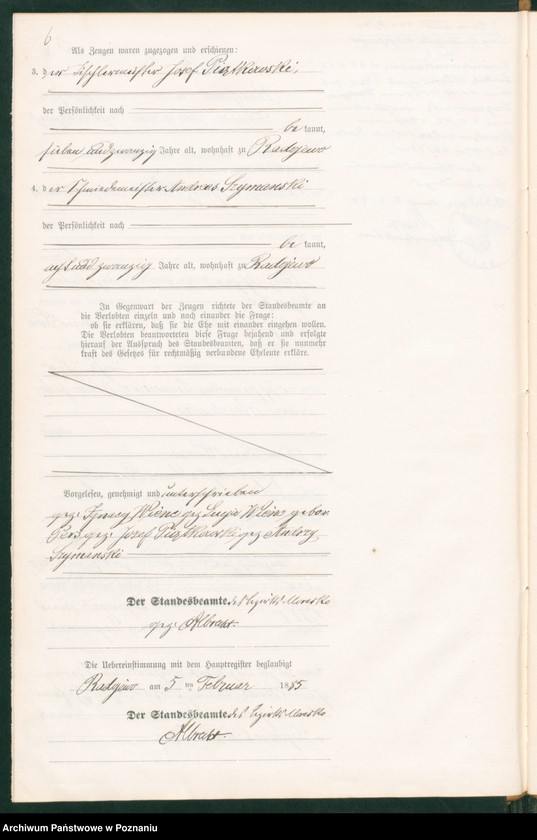 6
Als Zeugen waren zugezogen und erschienen:
3. der Tischlermeister Josef Piątkowski,
der Persönlichkeit nach
bekannt,
sieben und zwanzig Jahre alt, wohnhaft zu Radojewo
4. der Schmiedemeister Andreas Szymanski
der Persönlichkeit nach
bekannt,
acht und zwanzig Jahre alt, wohnhaft zu Radojewo
In Gegenwart der Zeugen richtete der Standesbeamte an
die Verlobten einzeln und nach einander die Frage:
ob sie erklären, daß sie die Ehe mit einander eingehen wollen.
Die Verlobten beantworteten diese Frage bejahend und erfolgte
hierauf der Ausspruch des Standesbeamten, daß er sie nunmehr
kraft des Gesetzes für rechtmäßig verbundene Eheleute erkläre.
Vorgelesen, genehmigt und unterschrieben
gez: Ignacy gez: geboren
gez: Jozef Piątkowski gez: Antony
Szymanski
Der Standesbeamte des Bezirks Morasko
gez: Albrecht
Die Uebereinstimmung mit dem Hauptregister beglaubigt
Radojewo am 5 ten Februar 1885
Der Standesbeamte des Bezirks Morasko
Albrecht
Archiwum Państwowe w Poznaniu